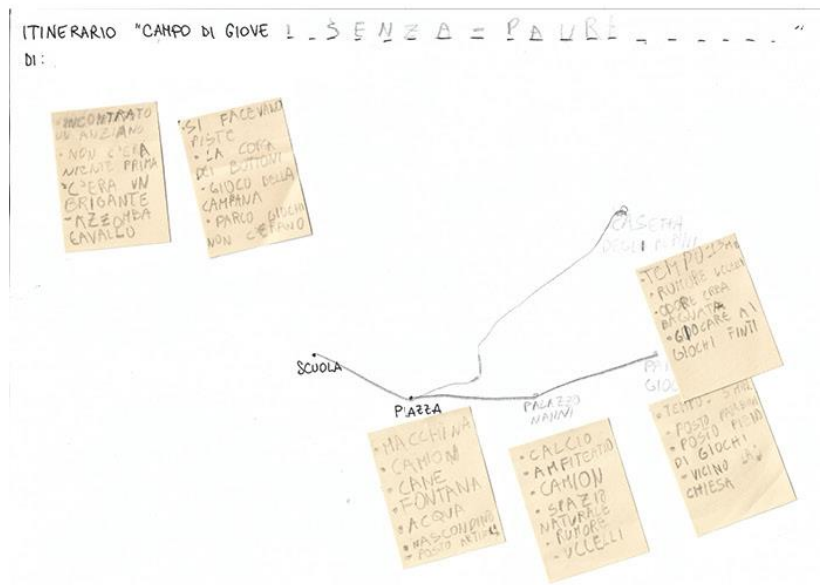 ITINERARIO "CAMPO DI GIOVE I _ S E N Z A = P A U R E _ _ _ _ _ _ "
DI:
• INCONTRATO
UN ANZIANO
• NON C'ERA
NIENTE PRIMA
• C'ERA UN
BRIGANTE
CAVALLO
• SI FACEVANO
PISTE
• LA CORSA
DEI BOTTONI
• GIOCO DELLA
CAMPANA
• PARCO GIOCHI
NON C'ERANO
CASETTA
DEGLI
• TEMPO
• RUMORE
• ODORE ERBA
BAGNATA
• GIOCARE AI
GIOCHI FINTI
SCUOLA
PIAZZA
PALAZZO
NANNI
• MACCHINA
• CAMION
• CANE
• FONTANA
• ACQUA
• POSTO
• CALCIO
• AMFITEATRO
• CAMION
• SPAZIO
NATURALE
• RUMORE
• UCCELLI
• POSTO
• POSTO PIENO
DI GIOCHI
• VICINO LA
CHIESA